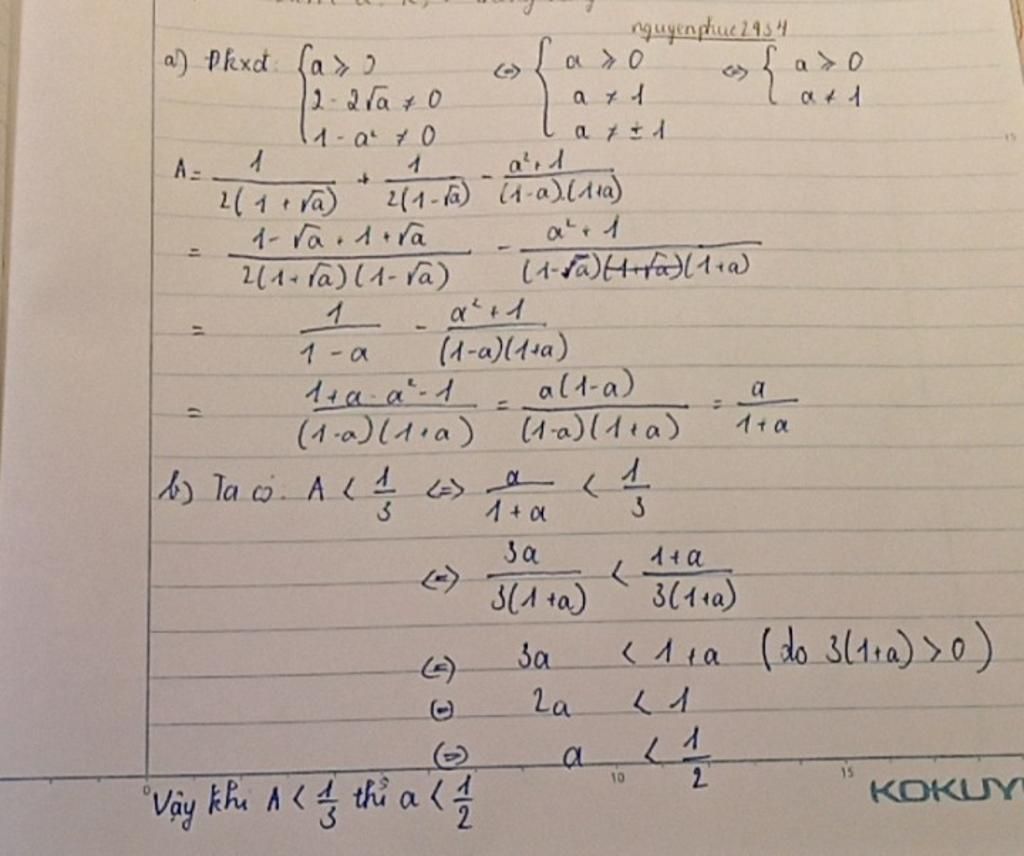 nguyenphuc2954
a) Đkxđ: { a ≥ 0 ⇔ { a ≥ 0 ⇔ { a ≥ 0
2 - 2√a ≠ 0 a ≠ 1 a ≠ 1
1 - a² ≠ 0 a ≠ ± 1
A = 1/(2(1 + √a)) + 1/(2(1-√a)) - (a²+1)/((1-a).(1+a))
= (1-√a+1+√a)/(2(1+√a)(1-√a)) - (a²+1)/((1-√a)(1+√a)(1+a))
= 1/(1-a) - (a²+1)/((1-a)(1+a))
= (1+a-a²-1)/((1-a)(1+a)) = a(1-a)/((1-a)(1+a)) = a/(1+a)
b) Ta có: A < 1/3 ⇔ a/(1+a) < 1/3
⇔ 3a/(3(1+a)) < (1+a)/(3(1+a))
⇔ 3a < 1+a (do 3(1+a) > 0)
⇔ 2a < 1
⇔ a < 1/2
0 10 15 KOKUY
Vậy khi A < 1/3 thì a < 1/2